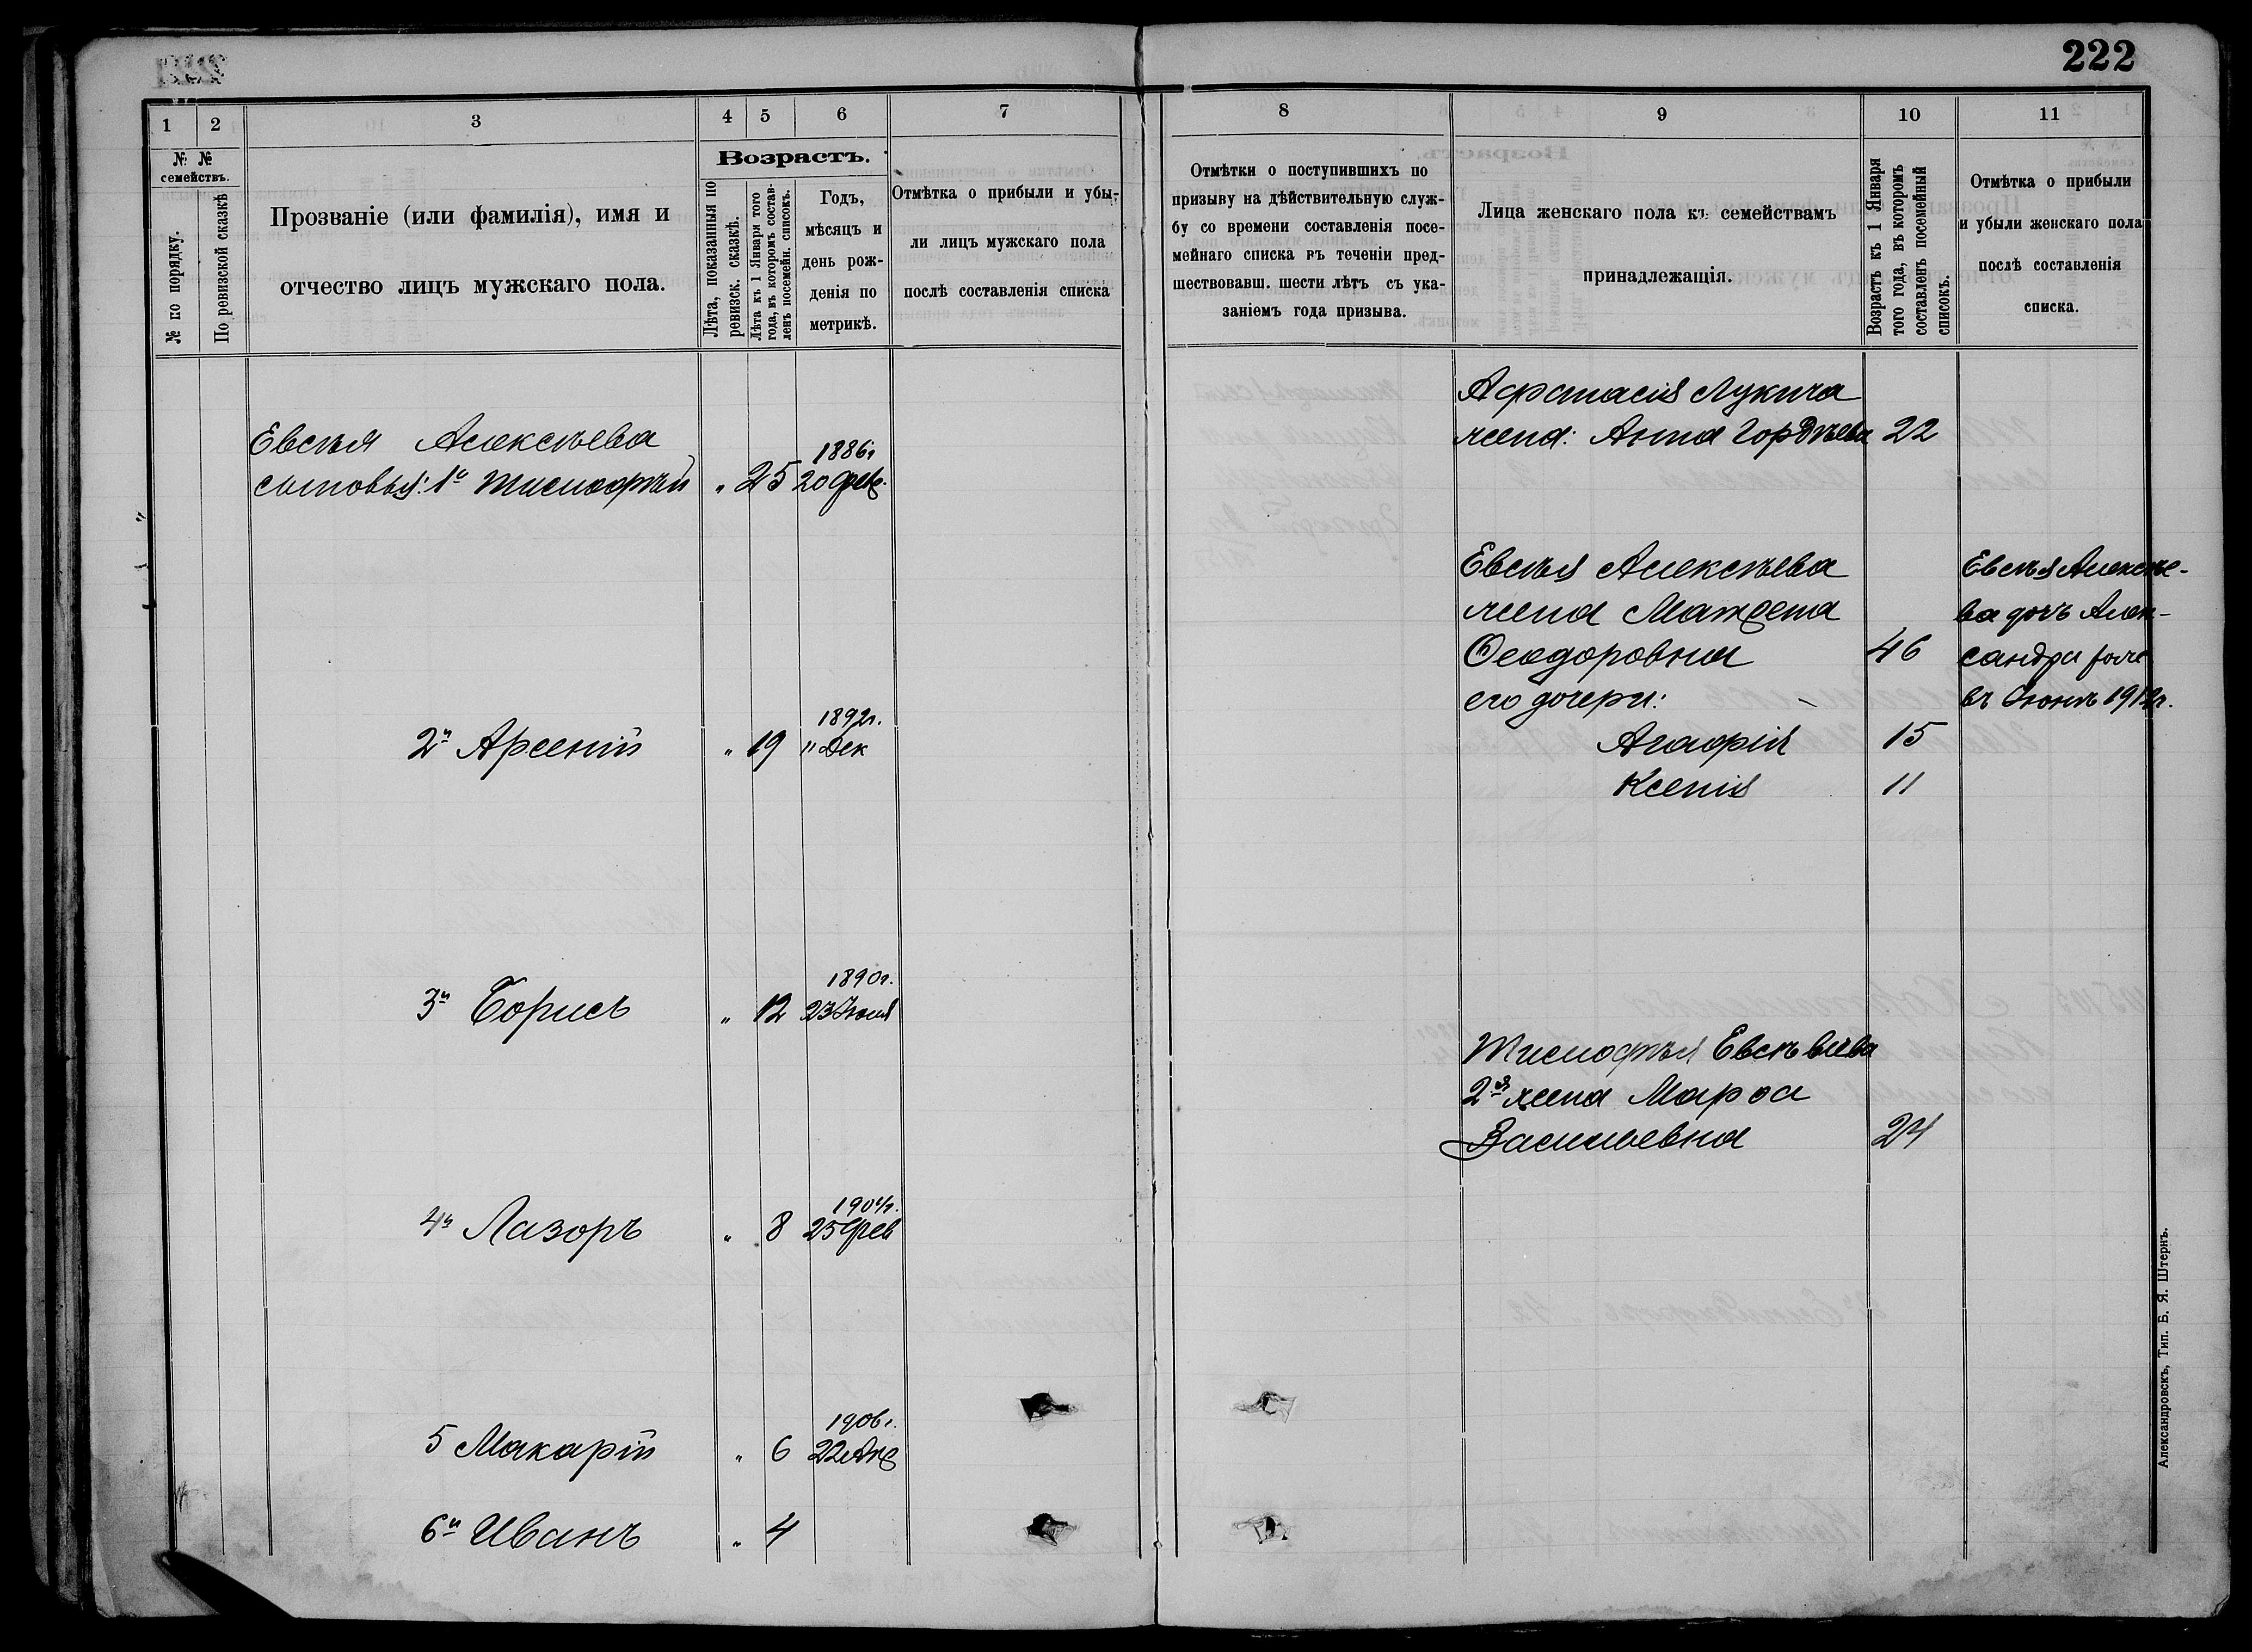 222
1
2
3
4
5
6
7
№ №
семействъ.
№ по порядку.
По ревизской сказкѣ
Прозваніе (или фамилія), имя и
отчество лицъ мужскаго пола.
Возрастъ.
Лѣта, показанныя по
ревизск. сказкѣ.
Лѣта къ 1 Января того
года, въ которомъ состав-
ленъ посемейн. списокъ.
Годъ,
мѣсяцъ и
день рож-
денія по
метрикѣ.
Отмѣтка о прибыли и убы-
ли лицъ мужскаго пола
послѣ составленія списка
Евсѣя Алексѣева
сыновья: 1й Тимофѣй " 25 1886г
20 Фев.
2й Арсеній " 19 1892г.
" Дек
3й Борисъ " 12 1890г.
23 Іюля
4й Лазоръ " 8 1904г.
25 Фев
5 Макарій " 6 1906г.
22
6й Иванъ " 4
8
9
10
11
Отмѣтки о поступившихъ по
призыву на дѣйствительную служ-
бу со времени составленія посе-
мейнаго списка въ теченіи пред-
шествовавш. шести лѣтъ съ ука-
заніемъ года призыва.
Лица женскаго пола къ семействамъ
принадлежащія.
Возрастъ къ 1 Января
того года, въ которомъ
составленъ посемейный
списокъ.
Отмѣтка о прибыли
и убыли женскаго пола
послѣ составленія
списка.
Афанасія Лукича
жена: Анна Гордѣева 22
Евсѣя Алексѣева
жена Матрена
Ѳеодоровна 46
его дочери:
Агафія 15
Ксенія 11
Евсѣя Алексѣе-
ва дочь Алек-
сандра
въ Іюнѣ 1912г.
Тимофѣя Евсѣева
2я жена Марѳа
Васильевна 24
Александровскъ, Тип. Б. Я. Штернъ.